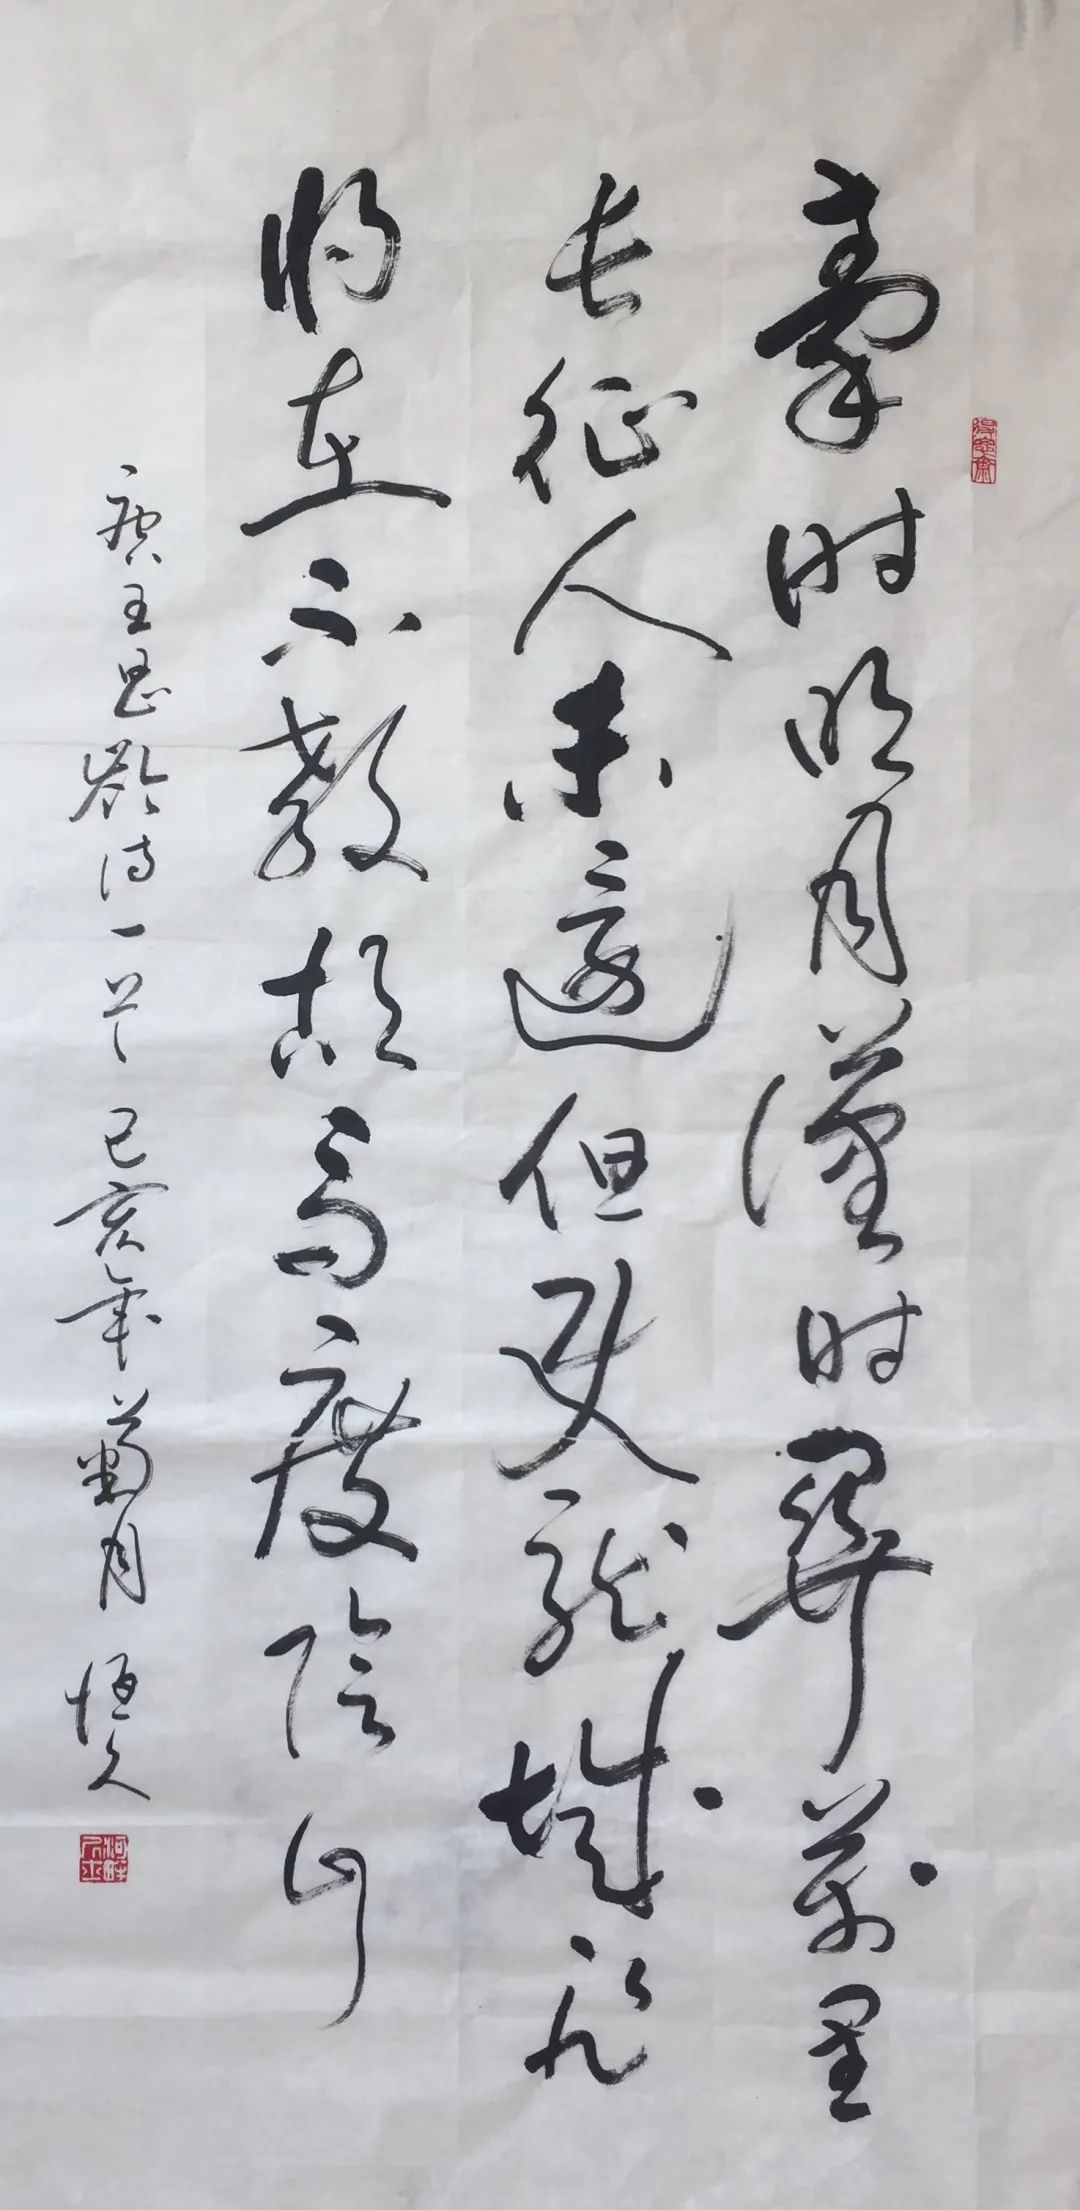 秦时明月漢时關萬里
长征人未還但使龙城飛
将在不教胡马度陰山
唐王昌龄诗一首 己亥年菊月 恒久